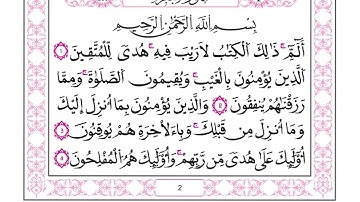 بِسْمِ اللَّهِ الرَّحْمَٰنِ الرَّحِيمِ
أَلَٓمِّٓ ذَٰلِكَ الْكِتَٰبُ لَا رَيْبَ فِيهِ هُدىً لِّلْمُتَّقِينَ ١
الَّذِينَ يُؤْمِنُونَ بِالْغَيْبِ وَيُقِيمُونَ الصَّلَوٰةَ وَمِمَّا
رَزَقْنَٰهُمْ يُنفِقُونَ ٢ وَالَّذِينَ يُؤْمِنُونَ بِمَا أُنزِلَ إِلَيْكَ
وَمَا أُنزِلَ مِن قَبْلِكَ وَبِالَاخِرَةِ هُمْ يُوقِنُونَ ٣
أُوْلَٰئِكَ عَلَىٰ هُدىً مِّن رَّبِّهِمْ وَأُوْلَٰئِكَ هُمُ الْمُفْلِحُونَ ٤
2